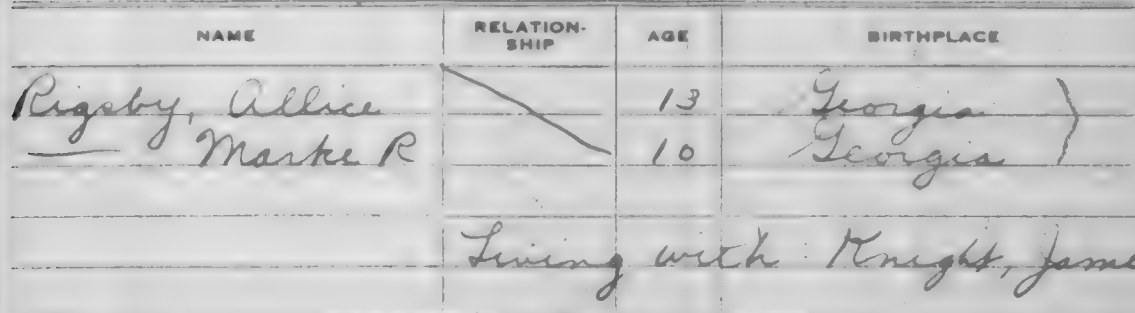 NAME RELATION-SHIP AGE BIRTHPLACE
Rigsby, Allice 13 Georgia
— Marke R 10 Georgia
Living with Knight, Jame